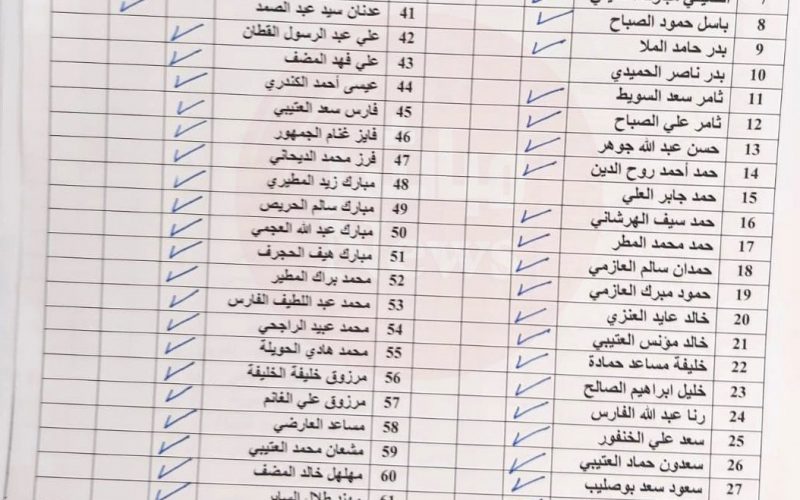 7
8 باسل حمود الصباح
9 بدر حامد الملا
10 بدر ناصر الحميدي
11 ثامر سعد السويط
12 ثامر علي الصباح
13 حسن عبد الله جوهر
14 حمد أحمد روح الدين
15 حمد جابر العلي
16 حمد سيف الهرشاني
17 حمد محمد المطر
18 حمدان سالم العازمي
19 حمود مبرك العازمي
20 خالد عايد العنزي
21 خالد مؤنس العتيبي
22 خليفة مساعد حمادة
23 خليل ابراهيم الصالح
24 رنا عبد الله الفارس
25 سعد علي الخنفور
26 سعدون حماد العتيبي
27 سعود سعد بوصليب
41 عدنان سيد عبد الصمد
42 علي عبد الرسول القطان
43 علي فهد المضف
44 عيسى أحمد الكندري
45 فارس سعد العتيبي
46 فايز غنام الجمهور
47 فرز محمد الديحاني
48 مبارك زيد المطيري
49 مبارك سالم الحريص
50 مبارك عبد الله العجمي
51 مبارك هيف الحجرف
52 محمد براك المطير
53 محمد عبد اللطيف الفارس
54 محمد عبيد الراجحي
55 محمد هادي الحويلة
56 مرزوق خليفة الخليفة
57 مرزوق علي الغانم
58 مساعد العارضي
59 مشعان محمد العتيبي
60 مهلهل خالد المضف
61
News